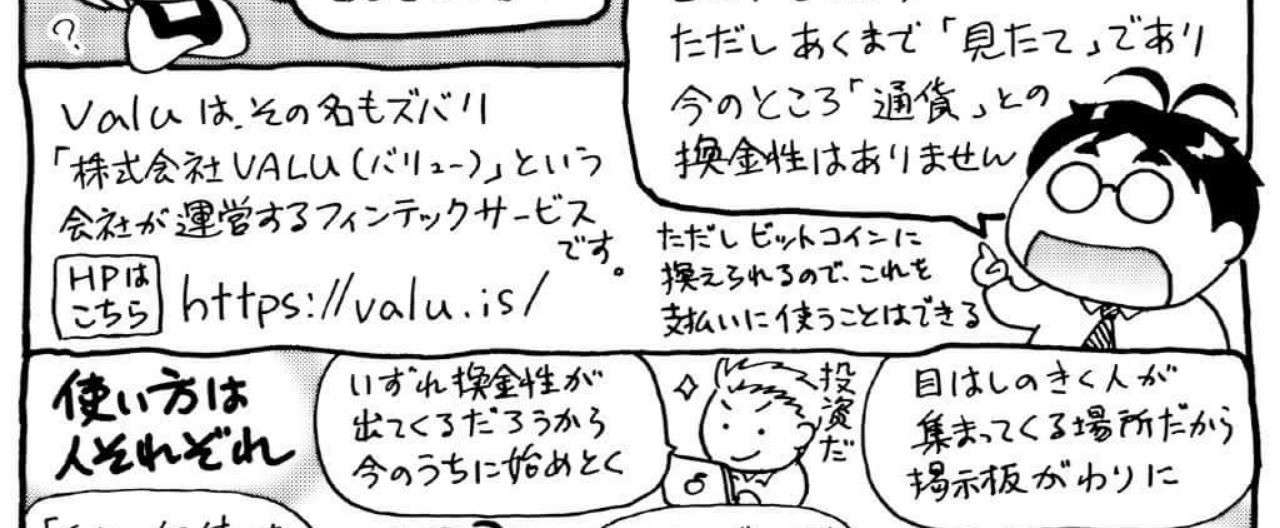 ?
ただし あくまで「見たて」であり
今のところ「通貨」との
換金性はありません
Valuは、その名もズバリ
「株式会社VALU(バリュー)」という
会社が運営するフィンテックサービス
です。
HPは
こちら
https://valu.is/
ただし ビットコインに
換えられるので、これを
支払いに使うことはできる
使い方は
人それぞれ
いずれ換金性が
出てくるだろうから
今のうちに始めとく
投資だ
目はしのきく人が
集まってくる場所だから
掲示板がわりに